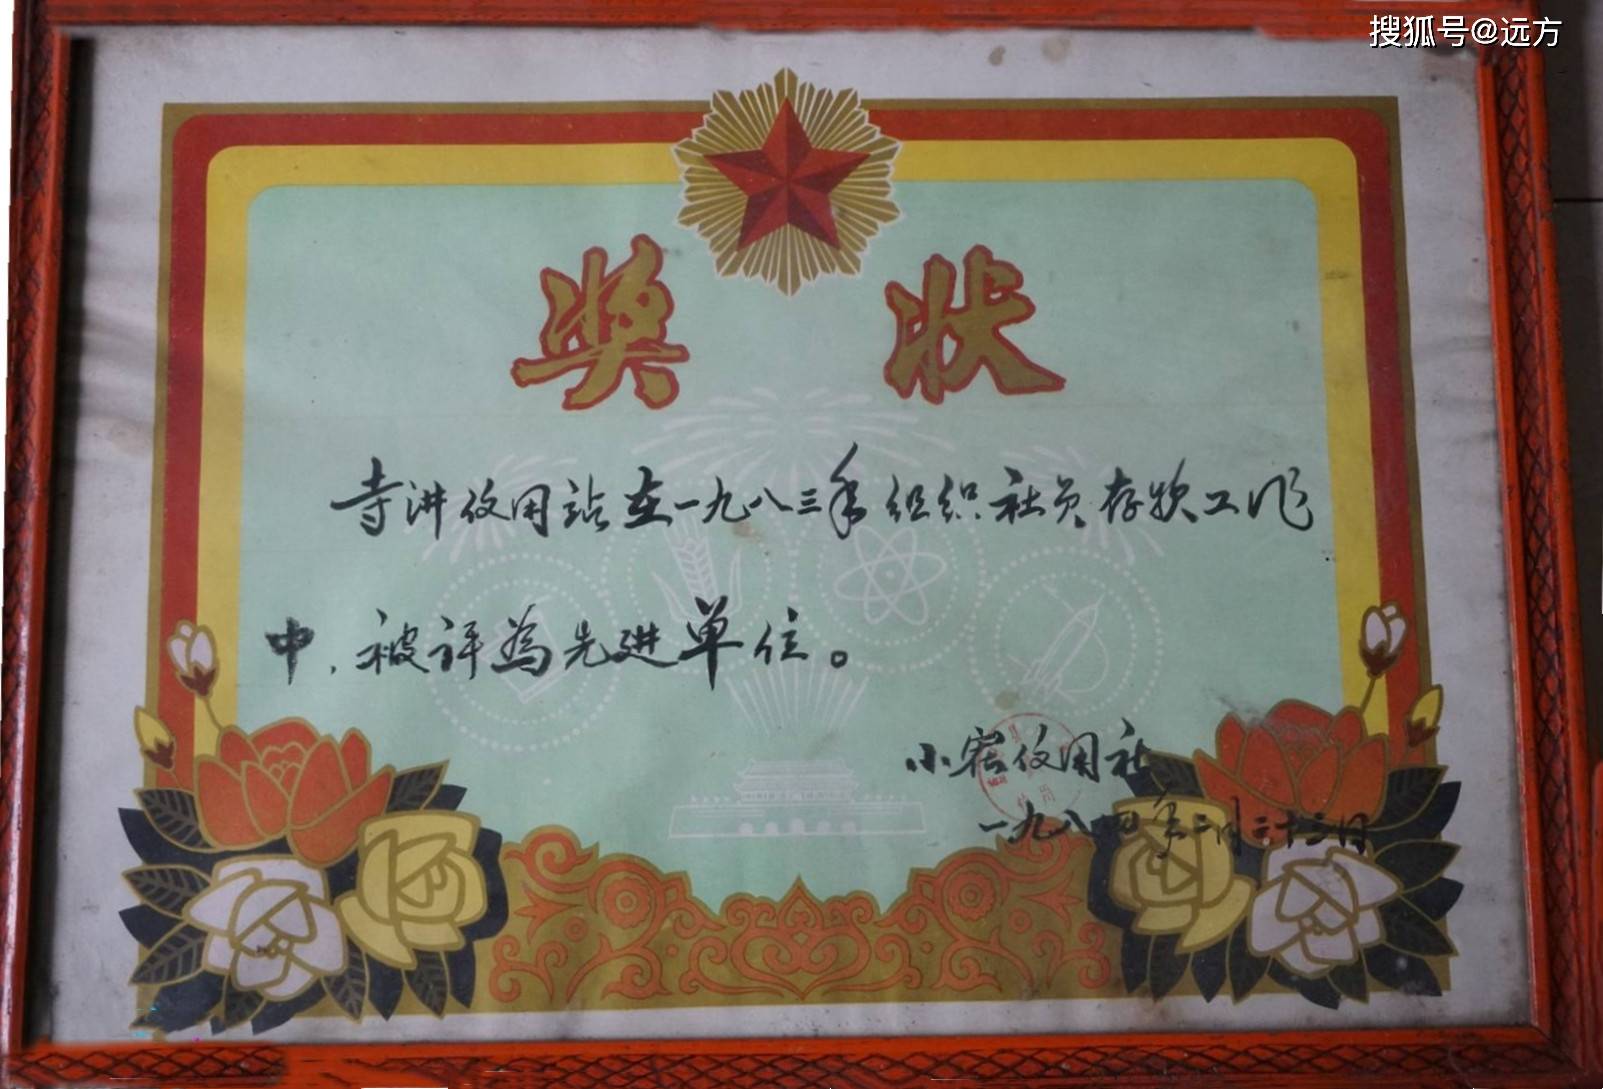 搜狐号@远方
奖状
寺洪信用站在一九八三年组织社员存款工作
中，被评為先进单位。
小宿信用社
一九八四年二月二十三日